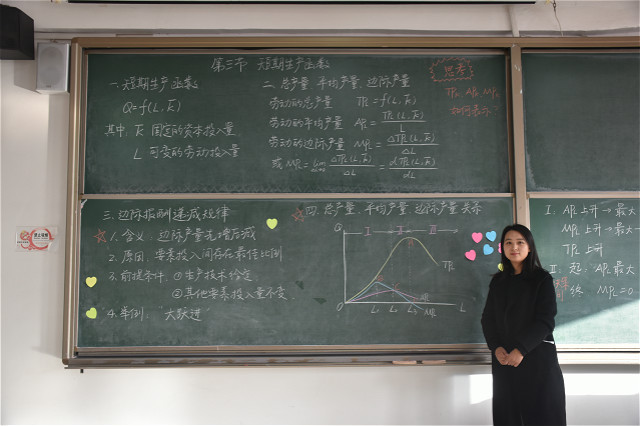 第三节 短期生产函数
一. 短期生产函数
Q=f(L,K̄)
其中, K̄ 固定的资本投入量
L 可变的劳动投入量
二. 总产量、平均产量、边际产量
劳动的总产量 TPL=f(L,K̄)
劳动的平均产量 APL=TPL(L,K̄)/L
劳动的边际产量 MPL=ΔTPL(L,K̄)/ΔL
或 MPL=lim ΔTPL(L,K̄)/ΔL=dTPL(L,K̄)/dL
思考
TPL APL MPL
如何表示?
三. 边际报酬递减规律
1. 含义: 边际产量先增后减
2. 原因: 要素投入间存在最佳比例
3. 前提条件: ①生产技术给定
②其他要素投入量不变
4. 举例: "大跃进"
四. 总产量、平均产量、边际产量关系
Q
I II III
TPL
APL
MPL
O L₁ L₂ L₃ L
I: APL上升→最大
MPL上升→最大
TPL上升
II: 起: APL最大
终: MPL=0